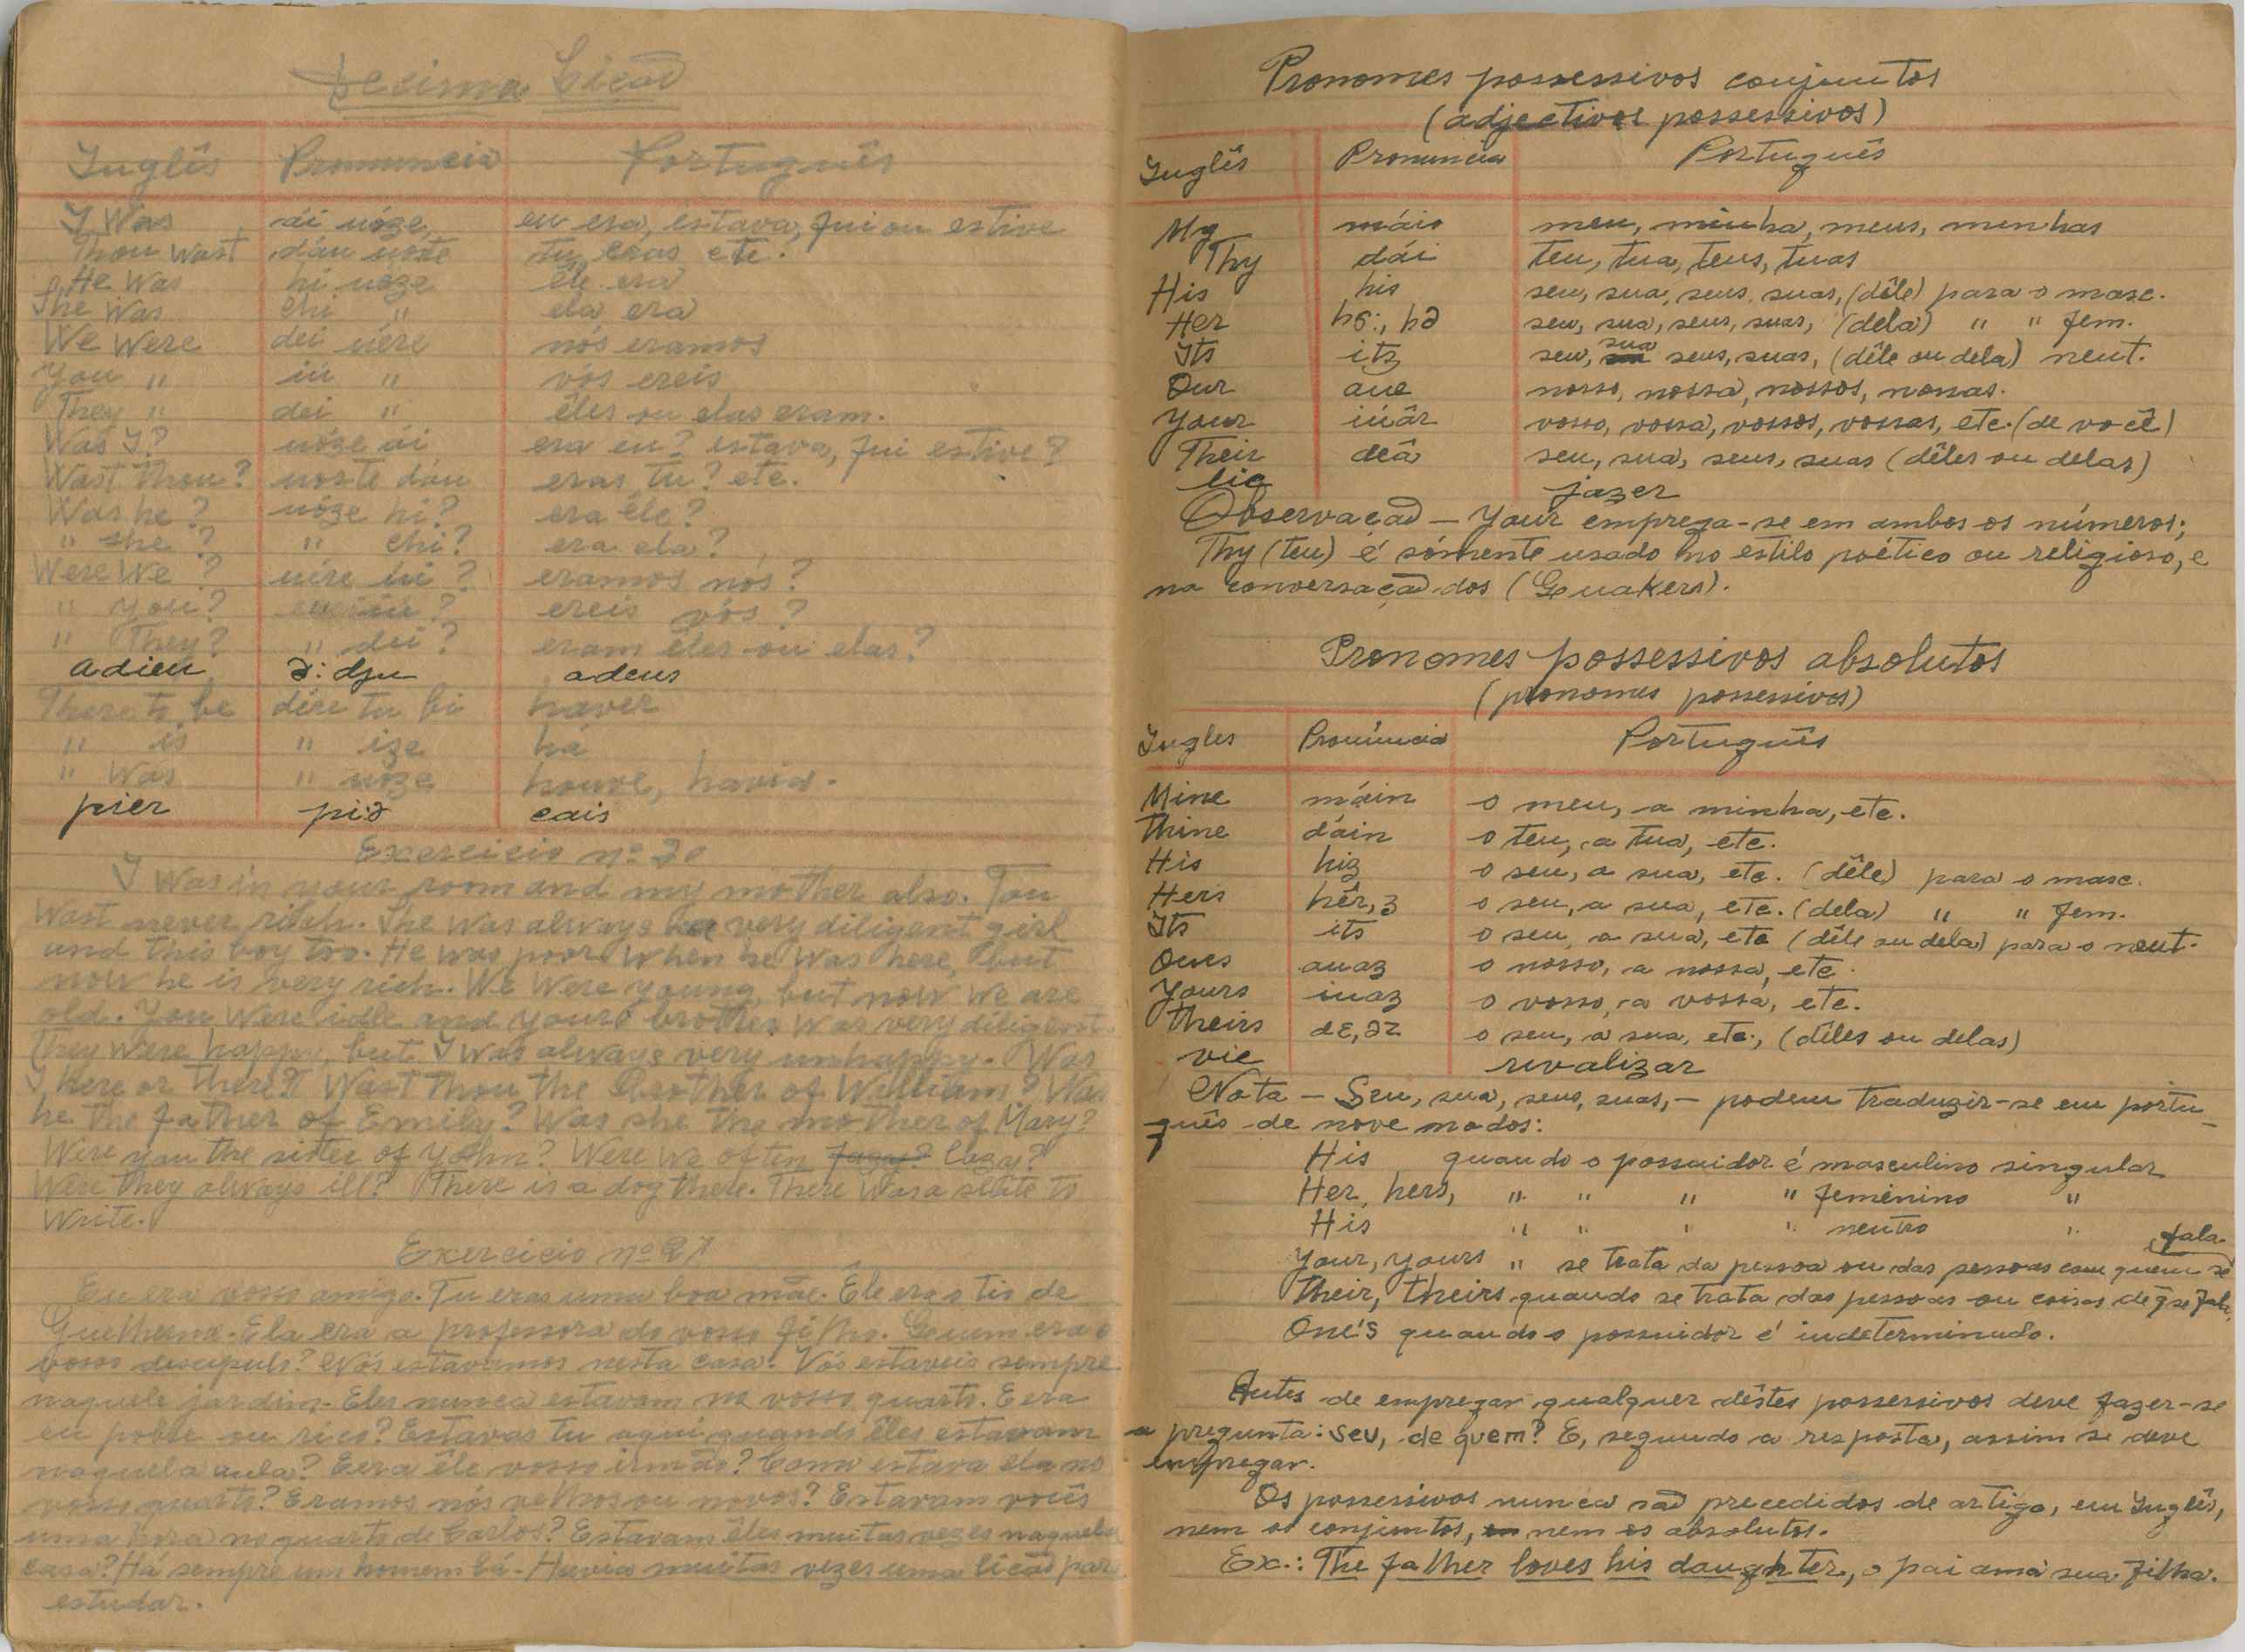 Decima Lição
Inglês Pronuncia Português
I Was ái uóze eu era, estava, fui ou estive
Thou Wast dáu uoste tu eras etc.
He Was hi uóze êle era
She Was chi " ela era
We Were dei uére nós eramos
You " iú " vós ereis
They " dei " êles ou elas eram.
Was I? uóze ái era eu? estava, fui estive?
Wast thou? uoste dáu eras tu? etc.
Was he? uóze hi? era êle?
" she? " chi? era ela?
Were We? uére úi? eramos nós?
" you? iú? ereis vós?
" They? " dei? eram êles ou elas?
adieu ə: dju adeus
There to be dére tu bi haver
" is " ize há
" Was " uóze houve, havia.
pier piə cais
Exercicio nº 20
I Was in your room and my mother also. Tou
Wast never rich. She Was always a very diligent girl
and this boy too. He was poor When he Was here, but
now he is very rich. We Were young, but now We are
old. You Were idle and yours brother Was very diligent.
They were happy, but I Was always very unhappy. Was
I here or there? Wast thou the brother of William? Was
he the father of Emily? Was she the mother of Mary?
Were you the sister of John? Were We often lazy?
Were they always ill? There is a dog there. There Was a slate to
Write.
Exercicio nº 21
Eu era vosso amigo. Tu eras uma boa mãe. Êle era o tio de
Guilherme. Ela era a professora do vosso filho. Quem era o
vosso discipulo? Nós estavamos nesta casa. Vós estaveis sempre
naquele jardim. Eles nunca estavam no vosso quarto. Eera
eu pobre ou rico? Estavas tu aqui quando êles estavam
naquela aula? Eera êle vosso irmão? Como estava ela no
vosso quarto? Eramos nós velhos ou novos? Estavam vocês
uma hora no quarto de Carlos? Estavam êles muitas vezes naquela
casa? Há sempre um homem lá. Havia muitas vezes uma lição para
estudar.
Pronomes possessivos conjuntos
(adjectivos possessivos)
Inglês Pronuncia Português
My máio meu, minha, meus, menhas
Thy dái teu, tua, teus, tuas
His his seu, sua, seus, suas, (dêle) para o masc.
Her hɜ:, hə seu, sua, seus, suas, (dela) " " fem.
Its itz seu, sua seus, suas, (dêle ou dela) neut.
Our aue nosso, nossa, nossos, nossas.
Your iúâr vosso, vossa, vossos, vossas, etc. (de você)
Their deâ seu, sua, seus, suas (dêles ou delas)
lie jazer
Observação – Your emprega-se em ambos os números;
Thy (teu) é sómente usado no estilo poético ou religioso, e
na conversação dos (Quakers).
Pronomes possessivos absolutos
(pronomes possessivos)
Ingles Pronúncia Português
Mine máin o meu, a minha, etc.
Thine dáin o teu, a tua, etc.
His hiz o seu, a sua, etc. (dêle) para o masc.
Hers hêr,z o seu, a sua, etc. (dela) " " fem.
Its its o seu, a sua, etc (dêle ou dela) para o neut.
Ours auaz o nosso, a nossa, etc.
Yours iuaz o vosso, a vossa, etc.
theirs dɛ,əz o seu, a sua, etc., (dêles ou delas)
vie rivalizar
Nota – Seu, sua, seus, suas, – podem traduzir-se em portu-
guês de nove modos:
His quando o possuidor é masculino singular
Her, hers, " " " " femenino "
His " " " " neutro "
Your, yours " se trata da pessoa ou das pessoas com quem se fala
Their, theirs quando se trata das pessoas ou coisas de q̃ se fala.
One's quando o possuidor é indeterminado.
Antes de empregar qualquer dêstes possessivos deve fazer-se
a pregunta: seu, de quem? E, segundo a resposta, assim se deve
empregar.
Os possessivos nunca são precedidos de artigo, em Inglês,
nem os conjuntos, nem os absolutos.
Ex.: The father loves his daughter, o pai ama sua filha.